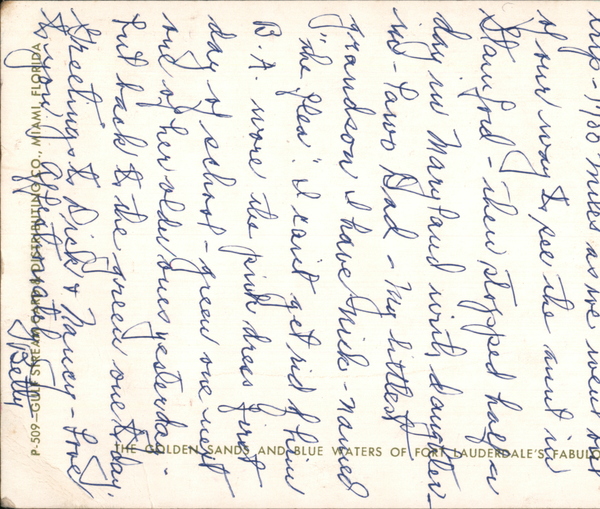 trip - 1900 miles as we went out
of our way to see the aunt in
Stamford - then stopped half a
day in Maryland with daughter-
in-laws Dad - My littlest
grandson I have nick-named
"the flea". I can't get rid of him
B.A. wore the pink dress first
day of school - green one next
and of her older ones yesterday -
but back to the green one today.
Greetings to Dick & Nancy - Love
to you. Affectionately
Betty
P-509-GULF STREAM CARD & DISTRIBUTING CO., MIAMI, FLORIDA
THE GOLDEN SANDS AND BLUE WATERS OF FORT LAUDERDALE'S FABULO